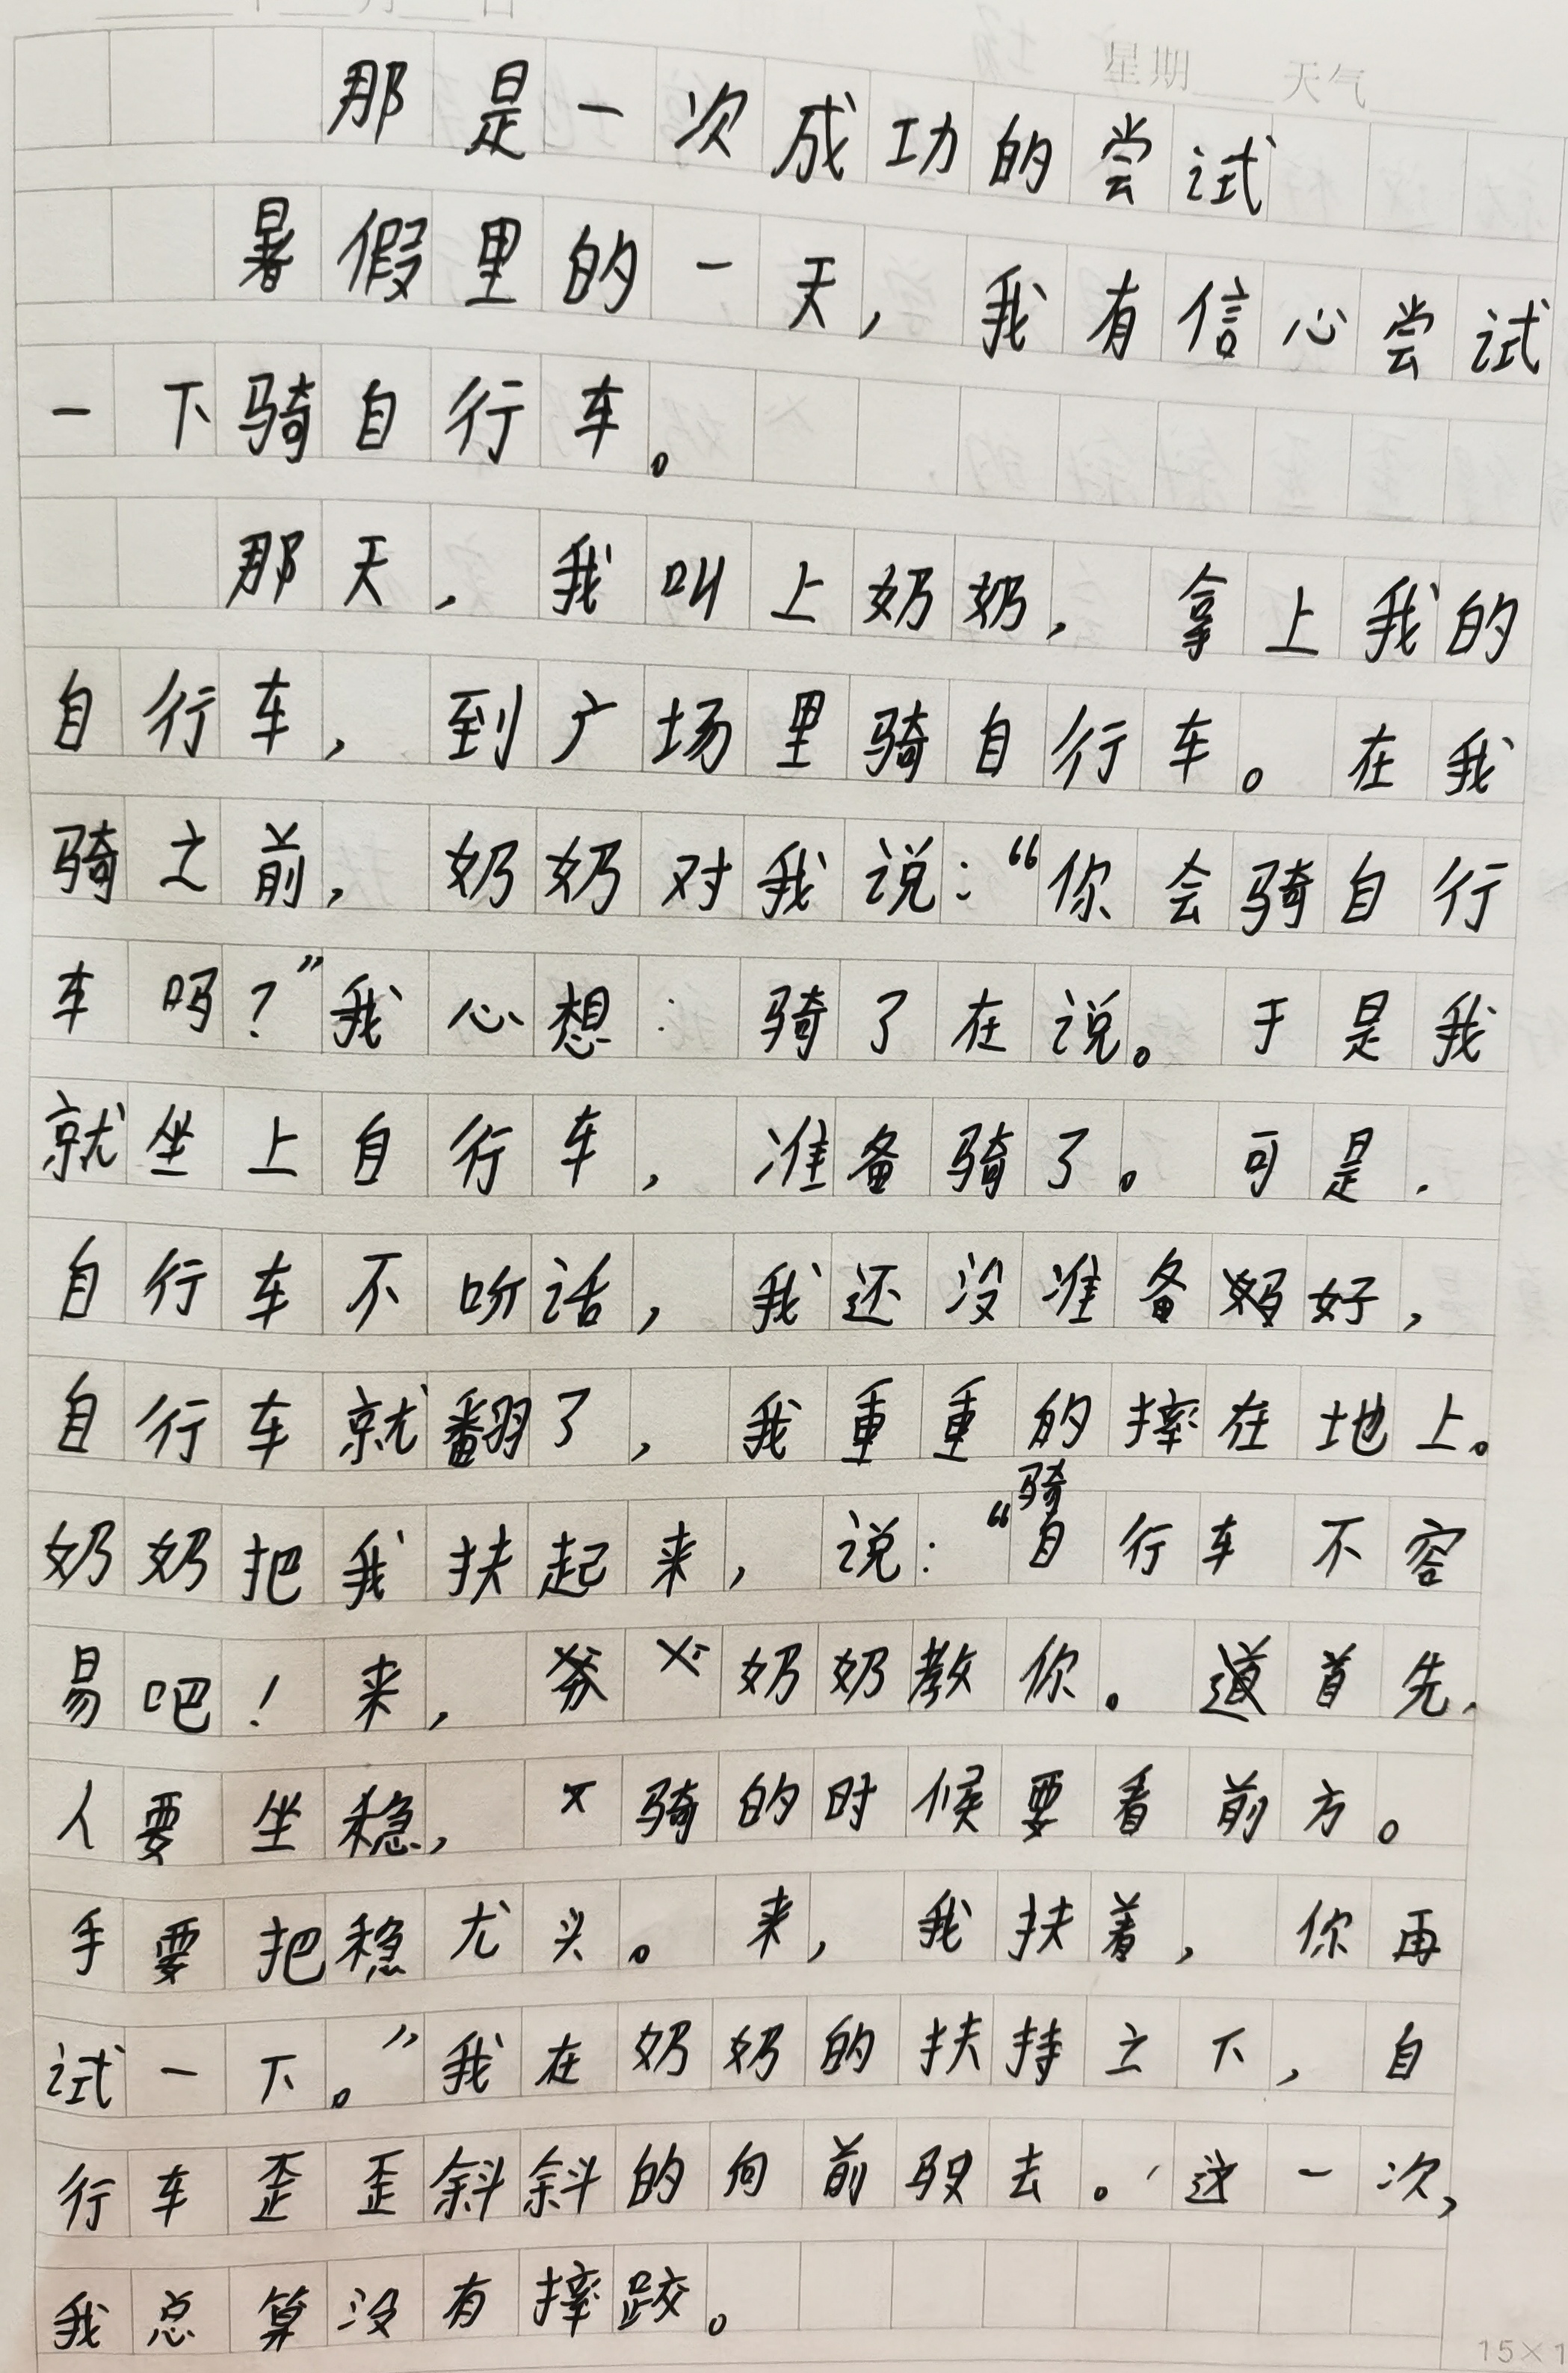 星期 天气
那是一次成功的尝试
暑假里的一天，我有信心尝试
一下骑自行车。
那天，我叫上奶奶，拿上我的
自行车，到广场里骑自行车。在我
骑之前，奶奶对我说：“你会骑自行
车吗？”我心想：骑了在说。于是我
就坐上自行车，准备骑了。可是，
自行车不听话，我还没准备好，
自行车就翻了，我重重的摔在地上。
奶奶把我扶起来，说：“骑自行车不容
易吧！来，奶奶教你。首先，
人要坐稳，骑的时候要看前方。
手要把稳尤头。来，我扶着，你再
试一下。”我在奶奶的扶持之下，自
行车歪歪斜斜的向前驶去。这一次，
我总算没有摔跤。